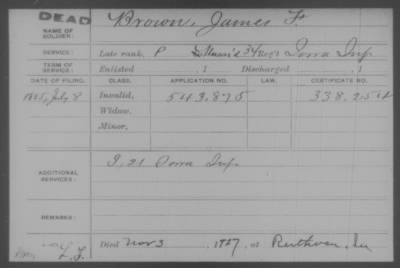 DEAD
NAME OF SOLDIER: Brown, James F.
SERVICE: Late rank, P 34 Reg't Iowa Inf
TERM OF SERVICE: Enlisted , 1 Discharged , 1
DATE OF FILING. CLASS. APPLICATION NO. LAW. CERTIFICATE NO.
1885, July 8 Invalid, 543.875 338.254
Widow,
Minor,
ADDITIONAL SERVICES: I, 21 Iowa Inf.
REMARKS:
Died Nov 3, 1927, at Ruthven, Ia